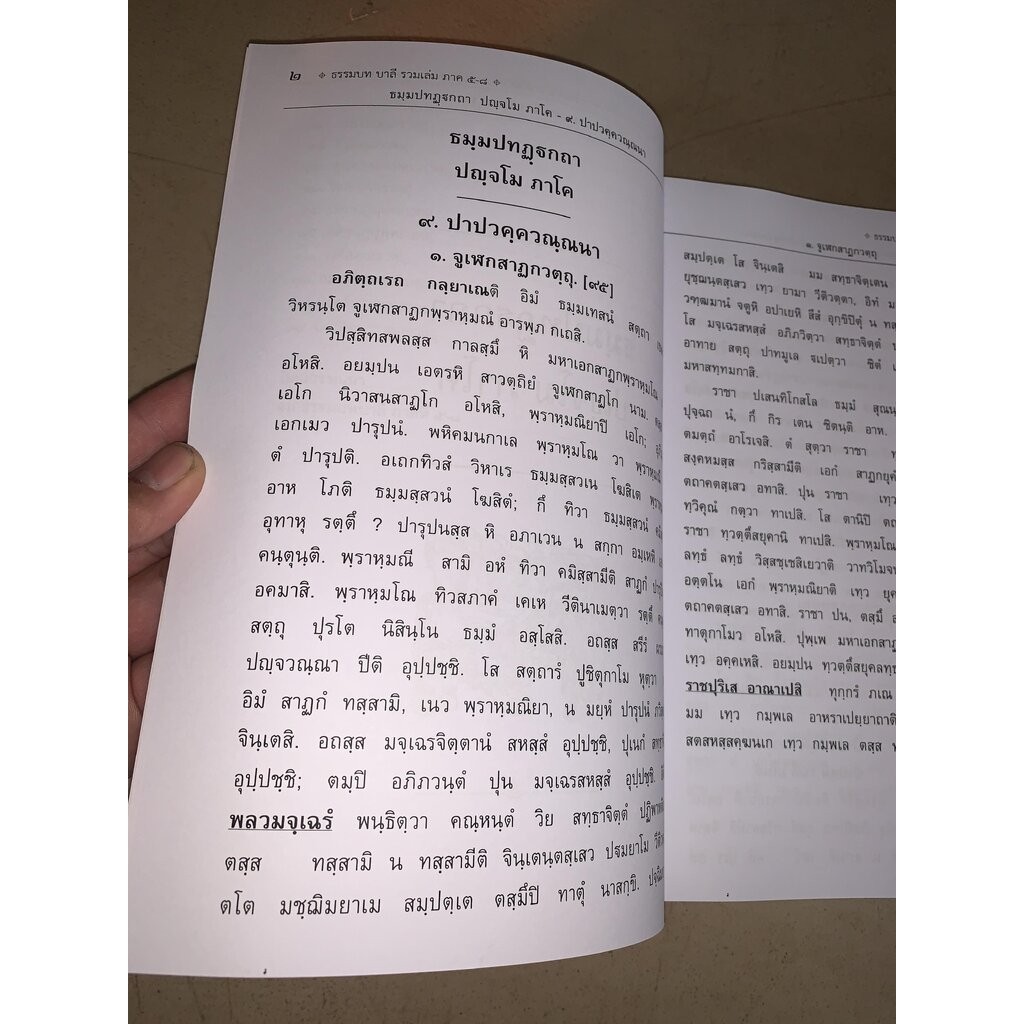 ๒ ❖ ธรรมบท บาลี รวมเล่ม ภาค ๕-๘ ❖
ธมฺมปทฏฺฐกถา ปญฺจโม ภาโค - ๙. ปาปวคฺควณฺณนา
ธมฺมปทฏฺฐกถา
ปญฺจโม ภาโค
๙. ปาปวคฺควณฺณนา
๑. จูเฬกสาฏกวตฺถุ. [๙๕]
อภิตฺถเรถ กลฺยาเณติ อิมํ ธมฺมเทสนํ สตฺถา
วิหรนฺโต จูเฬกสาฏกพฺราหฺมณํ อารพฺภ กเถสิ.
วิปสฺสิทสพลสฺส กาลสฺมึ หิ มหาเอกสาฏกพฺราหฺมโณ
อโหสิ. อยมฺปน เอตรหิ สาวตฺถิยํ จูเฬกสาฏโก นาม.
เอโก นิวาสนสาฏโก อโหสิ, พฺราหฺมณิยาปิ เอโก;
เอกเมว ปารุปนํ. พหิคมนกาเล พฺราหฺมโณ วา พฺราหฺมณี
ตํ ปารุปติ. อเถกทิวสํ วิหาเร ธมฺมสฺสวเน โฆสิเต
อาห โภติ ธมฺมสฺสวนํ โฆสิตํ; กึ ทิวา ธมฺมสฺสวนํ
อุทาหุ รตฺตึ ? ปารุปนสฺส หิ อภาเวน น สกฺกา อมฺเหหิ
คนฺตุนฺติ. พฺราหฺมณี สามิ อหํ ทิวา คมิสฺสามีติ สาฏกํ
อคมาสิ. พฺราหฺมโณ ทิวสภาคํ เคเห วีตินาเมตฺวา รตฺตึ
สตฺถุ ปุรโต นิสินฺโน ธมฺมํ อสฺโสสิ. อถสฺส สรีรํ
ปญฺจวณฺณา ปีติ อุปฺปชฺชิ. โส สตฺถารํ ปูชิตุกาโม หุตฺวา
อิมํ สาฏกํ ทสฺสามิ, เนว พฺราหฺมณิยา, น มยฺหํ ปารุปนํ
จินฺเตสิ. อถสฺส มจฺเฉรจิตฺตานํ สหสฺสํ อุปฺปชฺชิ, ปุเนกํ
อุปฺปชฺชิ; ตมฺปิ อภิภวนฺตํ ปุน มจฺเฉรสหสฺสํ อุปฺปชฺชิ.
พลวมจฺเฉรํ พนฺธิตฺวา คณฺหนฺตํ วิย สทฺธาจิตฺตํ
ตสฺส ทสฺสามิ น ทสฺสามีติ จินฺเตนฺตสฺเสว ปฐมยาโม
ตโต มชฺฌิมยาเม สมฺปตฺเต ตสฺมึปิ ทาตุํ นาสกฺขิ.
❖ ธรรมบ
๑. จูเฬกสาฏกวตฺถุ
สมฺปตฺเต โส จินฺเตสิ มม สทฺธาจิตฺเตน
ยุชฺฌนฺตสฺเสว เทฺว ยามา วีติวตฺตา, อิทํ
วฑฺฒมานํ จตูหิ อปาเยหิ สีสํ อุกฺขิปิตุํ น
โส มจฺเฉรสหสฺสํ อภิภวิตฺวา สทฺธาจิตฺตํ
อาทาย สตฺถุ ปาทมูเล ฐเปตฺวา ชิตํ
มหาสทฺทมกาสิ.
ราชา ปเสนทิโกสโล ธมฺมํ
ปุจฺฉถ นํ, กึ กิร เตน ชิตนฺติ อาห.
ตมตฺถํ อาโรเจสิ. ตํ สุตฺวา ราชา
สงฺคหมสฺส กริสฺสามีติ เอกํ สาฏกยุคํ
ตถาคตสฺเสว อทาสิ. ปุน ราชา เทฺว
ทฺวิคุณํ กตฺวา ทาเปสิ. โส ตานิปิ
ราชา ทฺวตฺตึสยุคานิ ทาเปสิ. พฺราหฺมโณ
ลทฺธํ ลทฺธํ วิสฺสชฺเชสิเยวาติ
อตฺตโน เอกํ พฺราหฺมณิยาติ เทฺว
ตถาคตสฺเสว อทาสิ. ราชา ปน, ตสฺมึ
ทาตุกาโมว อโหสิ. ปุพฺเพ มหาเอกสาฏ
เทฺว อคฺคเหสิ. อยมฺปน ทฺวตฺตึสยุคลทฺธ
ราชปุริเส อาณาเปสิ ทุกฺกรํ ภเณ
มม เทฺว กมฺพเล อาหราเปยฺยาถาติ
สตสหสฺสคฺฆนเก เทฺว กมฺพเล ตสฺส